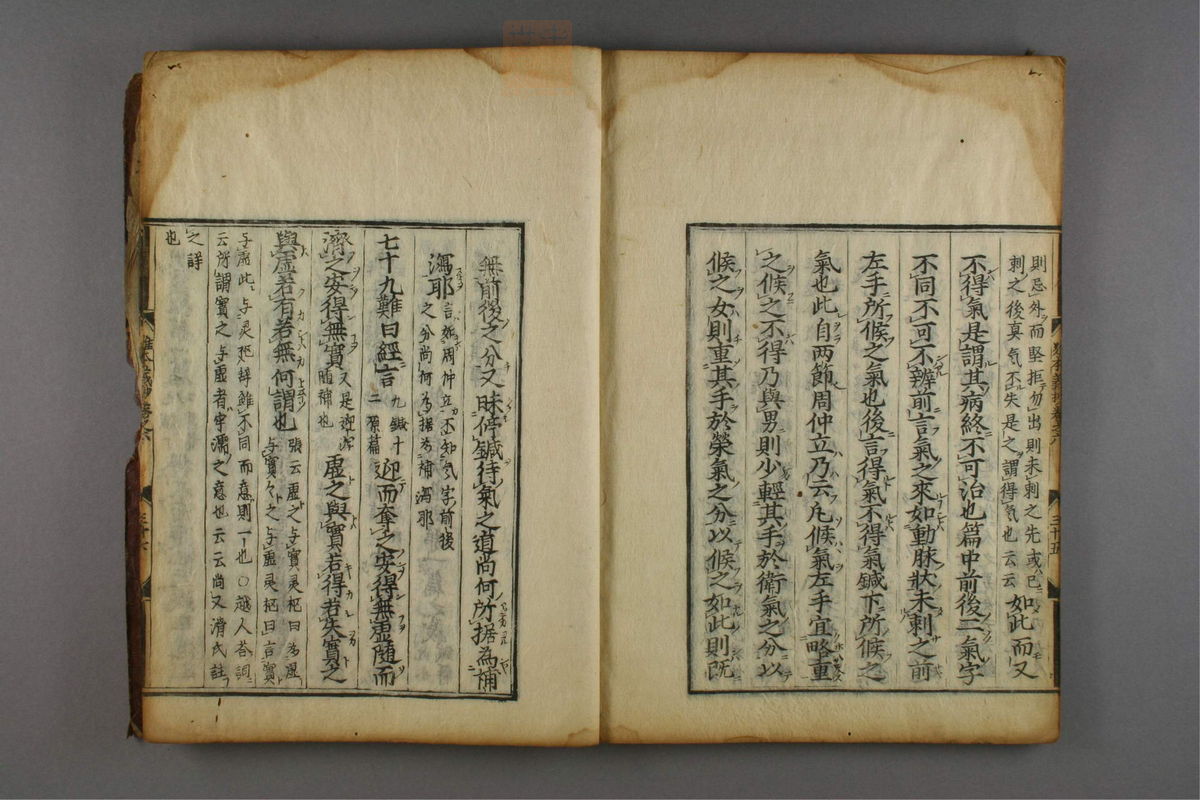 則忌外而堅拒勿出則未刺之先或已
刺之後真気不失是之謂得気也云云
如此而又
不得氣是謂其病終不可治也篇中前後二氣字
不同不可不辨前言氣之來如動脉狀未刺之前
左手所候之氣也後言得氣不得氣鍼下所候之
氣也此自两節周仲立乃云凡候氣左手宜略重
之候之不得乃與男則少輕其手於衛氣之分以
候之女則重其手於榮氣之分以候之如此則既
三十五
無前後之分又昧停鍼待氣之道尚何所据為補
瀉耶
言如周仲立不知気字前後
之分尚何為据為補瀉耶
七十九難曰經言
九鍼十
二原篇
迎而奪之安得無虛隨而
濟之安得無實
又是迎瀉
随補也
虛之與實若得若失實之
與虛若有若無何謂也
張云虚之与實灵枢曰為虚
与實々之与虚灵枢曰言實
与虚此与灵枢辞雖不同而意則一也○越人荅詞
云所謂實之与虚者牢濡之意也云云尚又滑氏註
之詳
也
三十六